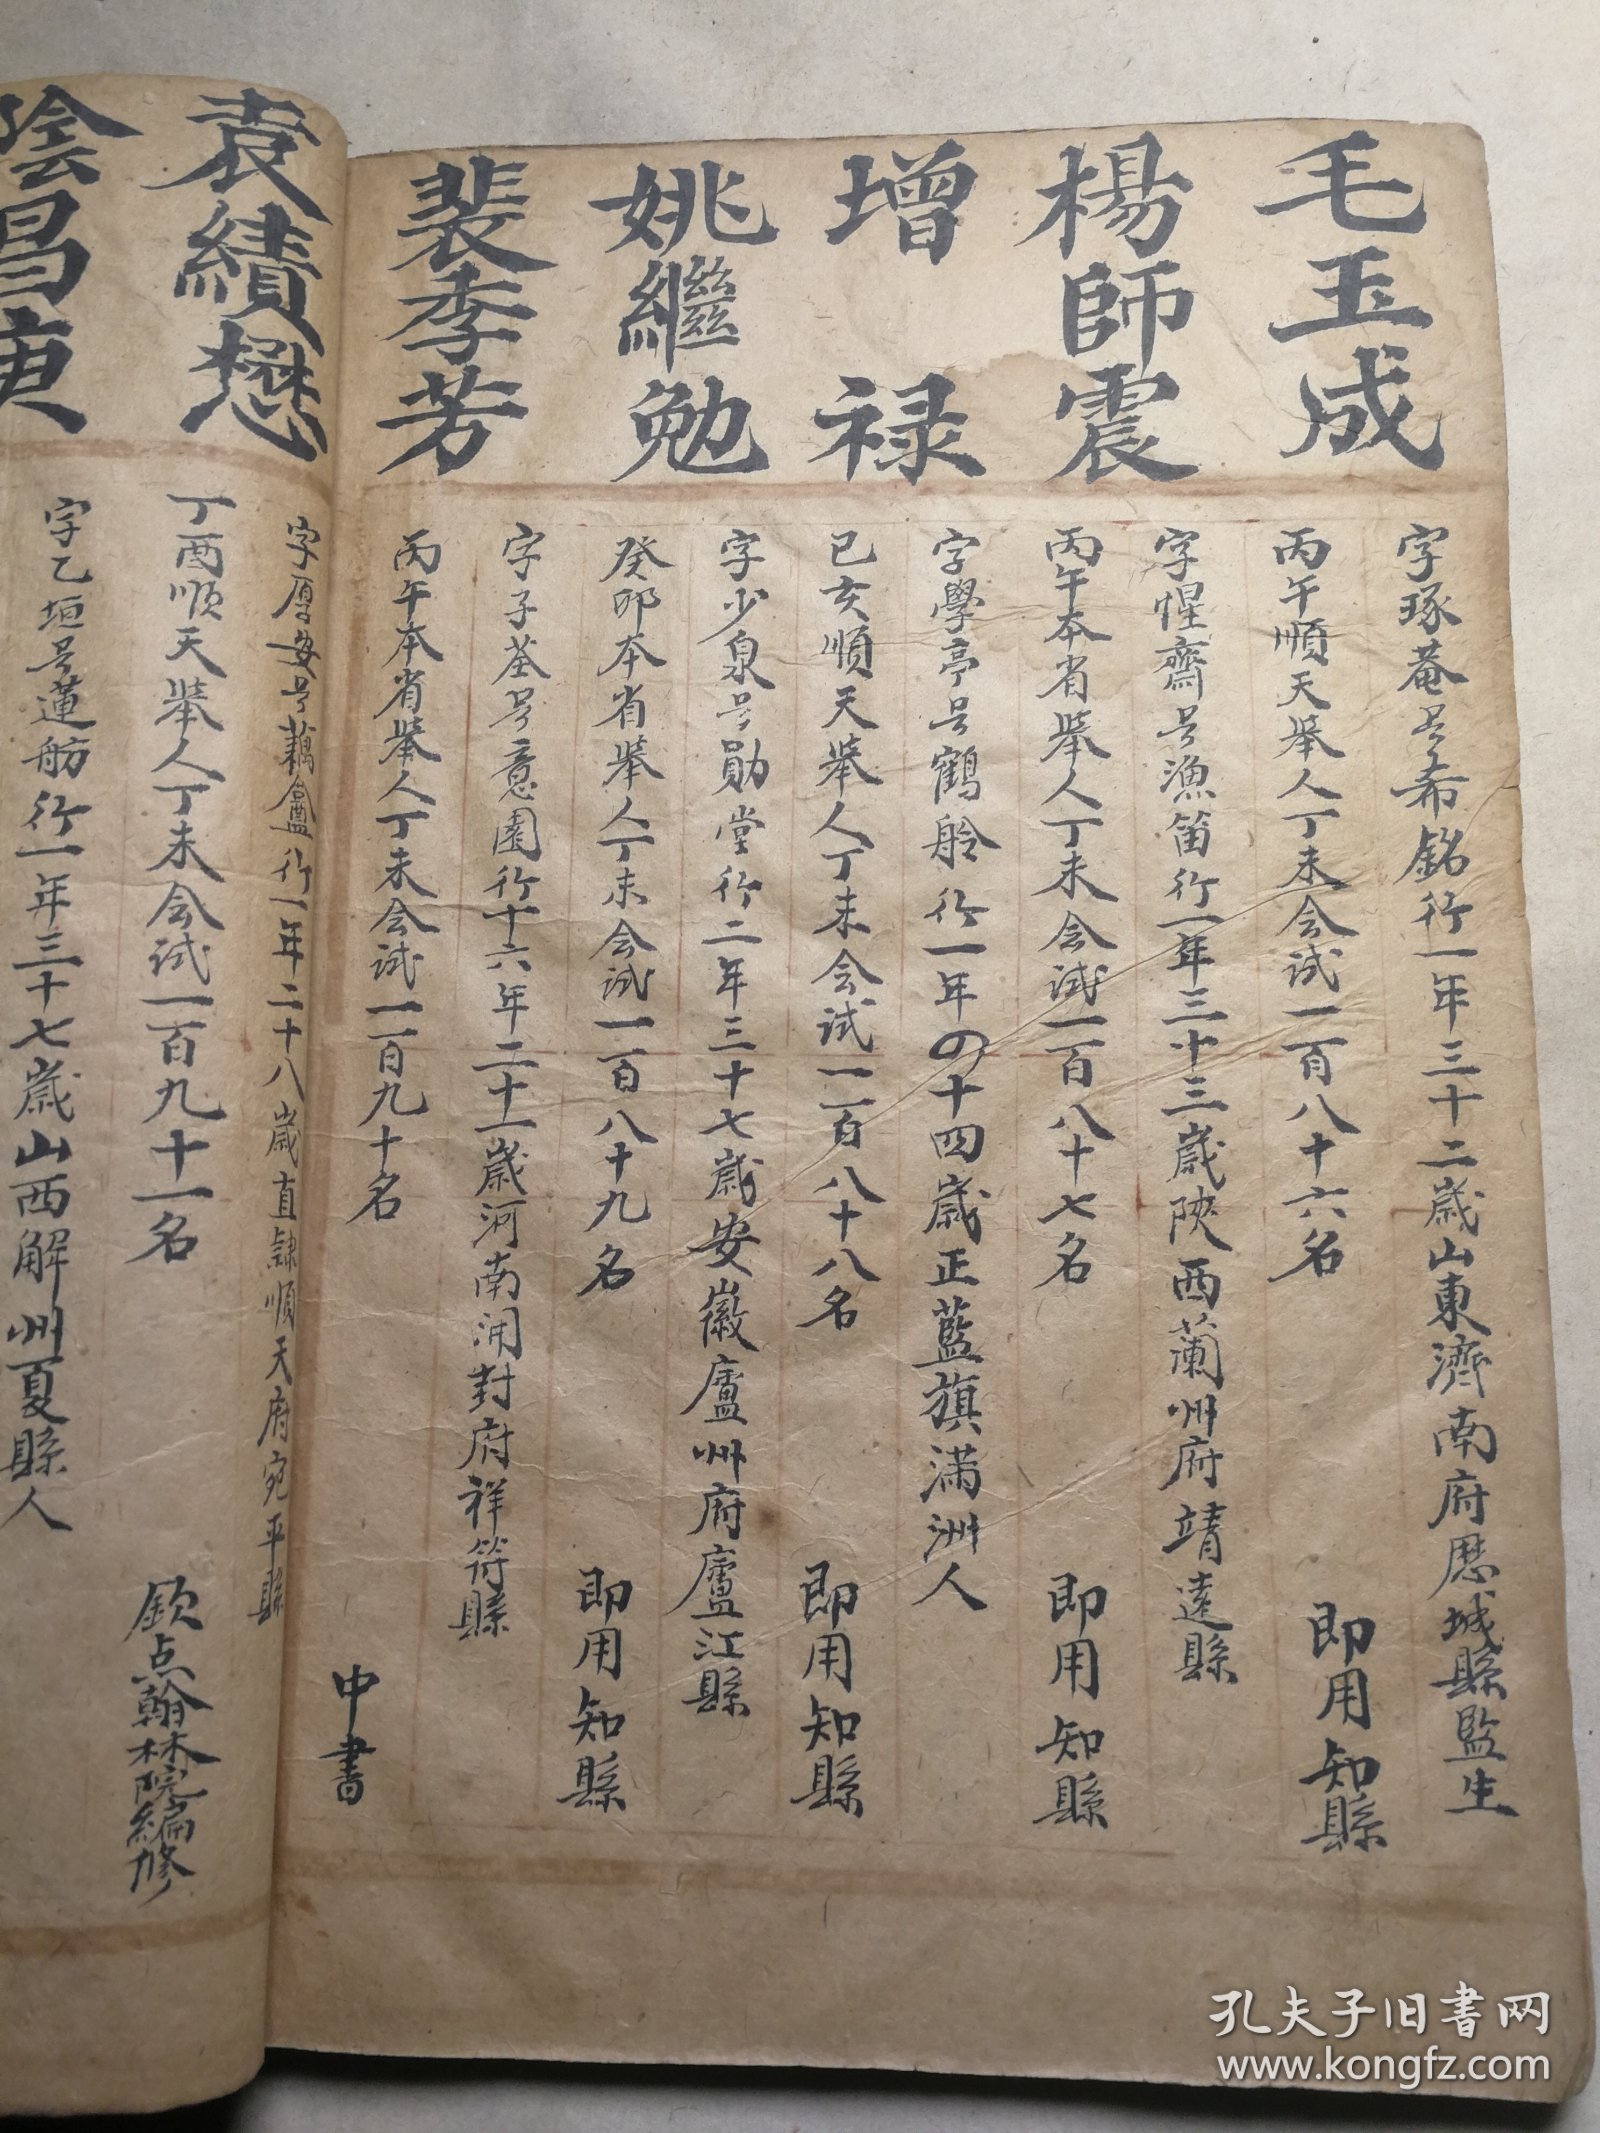 毛玉成
字琢菴号希銘行一年三十二歲山東濟南府歷城縣監生
丙午順天舉人丁未会试一百八十六名
即用知縣
楊師震
字惺齋号漁笛行一年三十三歲陝西蘭州府靖遠縣
丙午本省舉人丁未会试一百八十七名
即用知縣
增禄
字學亭号鶴舲行一年四十四歲正藍旗满洲人
已亥順天舉人丁未会试一百八十八名
即用知縣
姚繼勉
字少泉号勛堂行二年三十七歲安徽廬州府廬江縣
癸卯本省舉人丁未会试一百八十九名
即用知縣
裴季芳
字子荃号意園行十六年二十一歲河南開封府祥符縣
丙午本省舉人丁未会试一百九十名
中書
袁績懋
字厚安号藕盦行一年二十八歲直隸順天府宛平縣
丁酉順天舉人丁未会试一百九十一名
欽点翰林院編修
陰昌庚
字乙垣号蓮舫行一年三十七歲山西解州夏縣人
孔夫子旧书网
www.kongfz.com